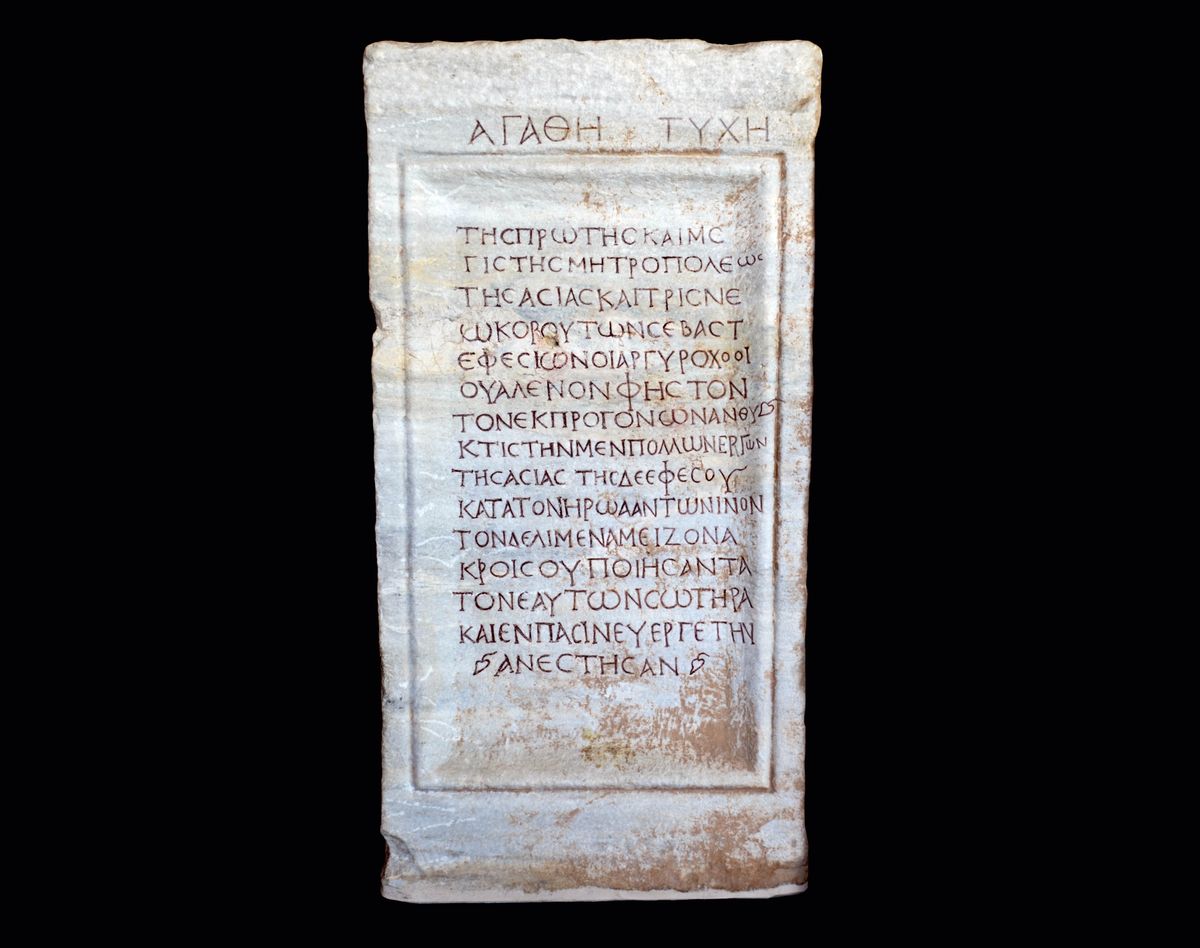 ΑΓΑΘΗ ΤΥΧΗ
ΤΗϹΠΡΩΤΗϹΚΑΙΜΕ
ΓΙϹΤΗϹΜΗΤΡΟΠΟΛΕΩϹ
ΤΗϹΑϹΙΑϹΚΑΙΤΡΙϹΝΕ
ΩΚΟΡΟΥΤΩΝϹΕΒΑϹΤ
ΕΦΕϹΙΩΝΟΙΑΡΓΥΡΟΧΟΟΙ
ΟΥΑΛΕΝΟΝΦΗϹΤΟΝ
ΤΟΝΕΚΠΡΟΓΟΝΩΝΑΝΘΥ
ΚΤΙϹΤΗΝΜΕΝΠΟΛΛΩΝΕΡΓΩΝ
ΤΗϹΑϹΙΑϹ ΤΗϹΔΕΕΦΕϹΟΥ
ΚΑΤΑΤΟΝΗΡΩΑΑΝΤΩΝΙΝΟΝ
ΤΟΝΔΕΛΙΜΕΝΑΜΕΙΖΟΝΑ
ΚΡΟΙϹΟΥ ΠΟΙΗϹΑΝΤΑ
ΤΟΝΕΑΥΤΩΝϹΩΤΗΡΑ
ΚΑΙΕΝΠΑϹΙΝΕΥΕΡΓΕΤΗΝ
ΑΝΕϹΤΗϹΑΝ